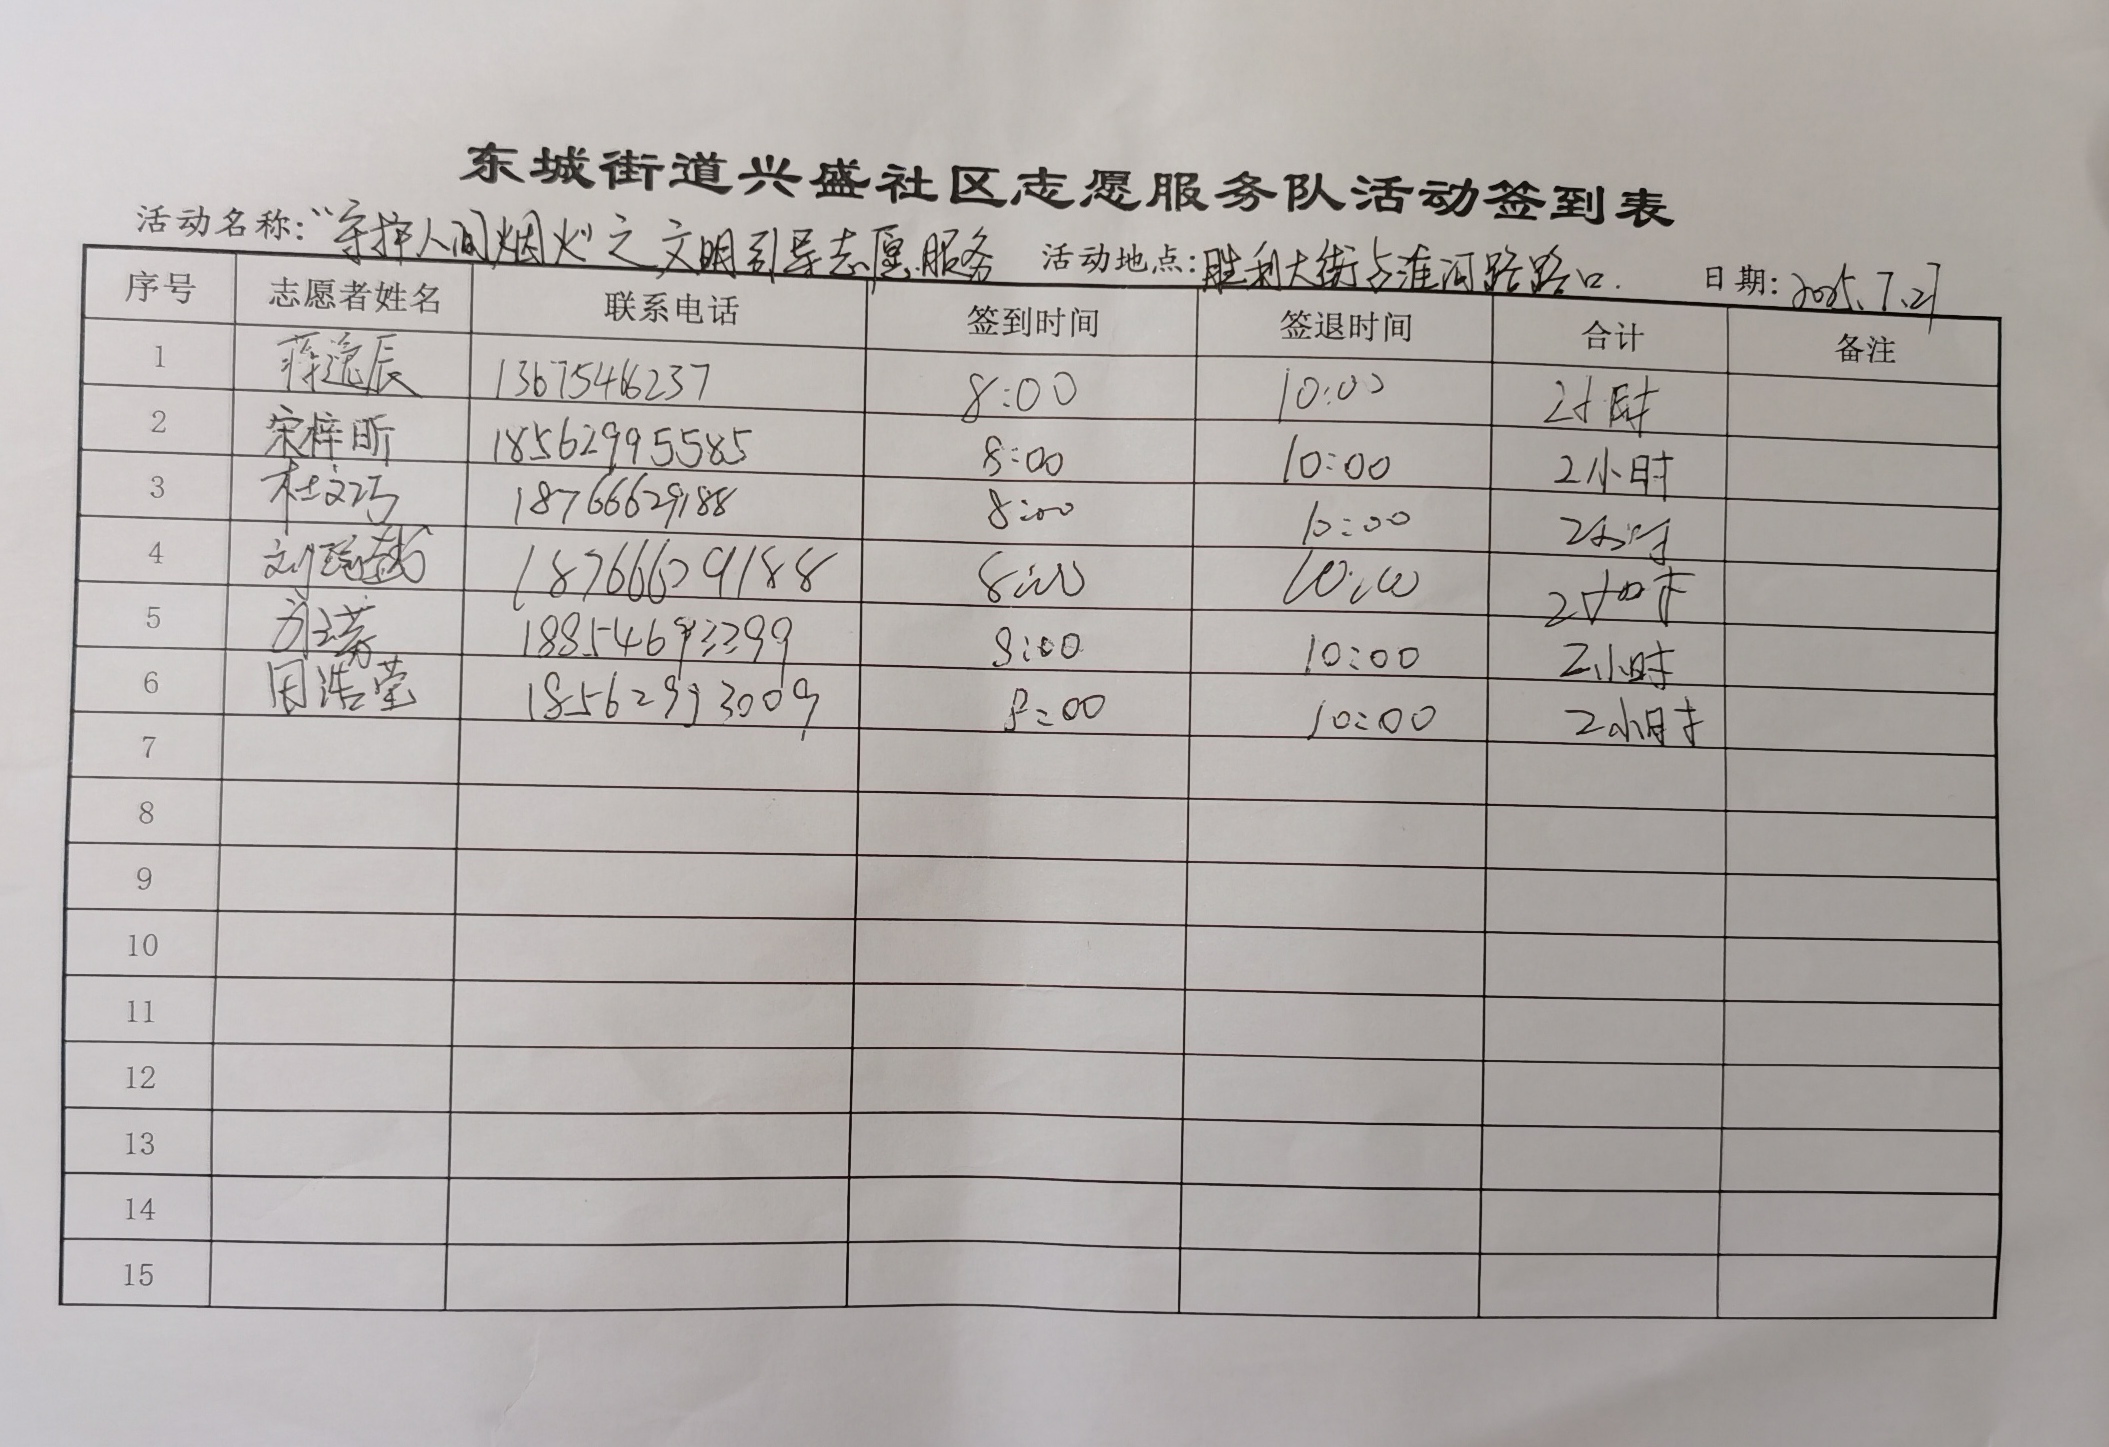 东城街道兴盛社区志愿服务队活动签到表
活动名称:“守护人间烟火”之文明引导志愿服务 活动地点:胜利大街与淮河路路口. 日期:2025.7.21
序号 志愿者姓名 联系电话 签到时间 签退时间 合计 备注
1 蒋逸辰 13675466237 8:00 10:00 2小时
2 宋梓昕 18562995585 8:00 10:00 2小时
3 杜文巧 18766629188 8:00 10:00 2小时
4 刘 18766629188 8:00 10:00 2小时
5 8:00 10:00 2小时
6 周浩莹 18562993009 8:00 10:00 2小时
7
8
9
10
11
12
13
14
15